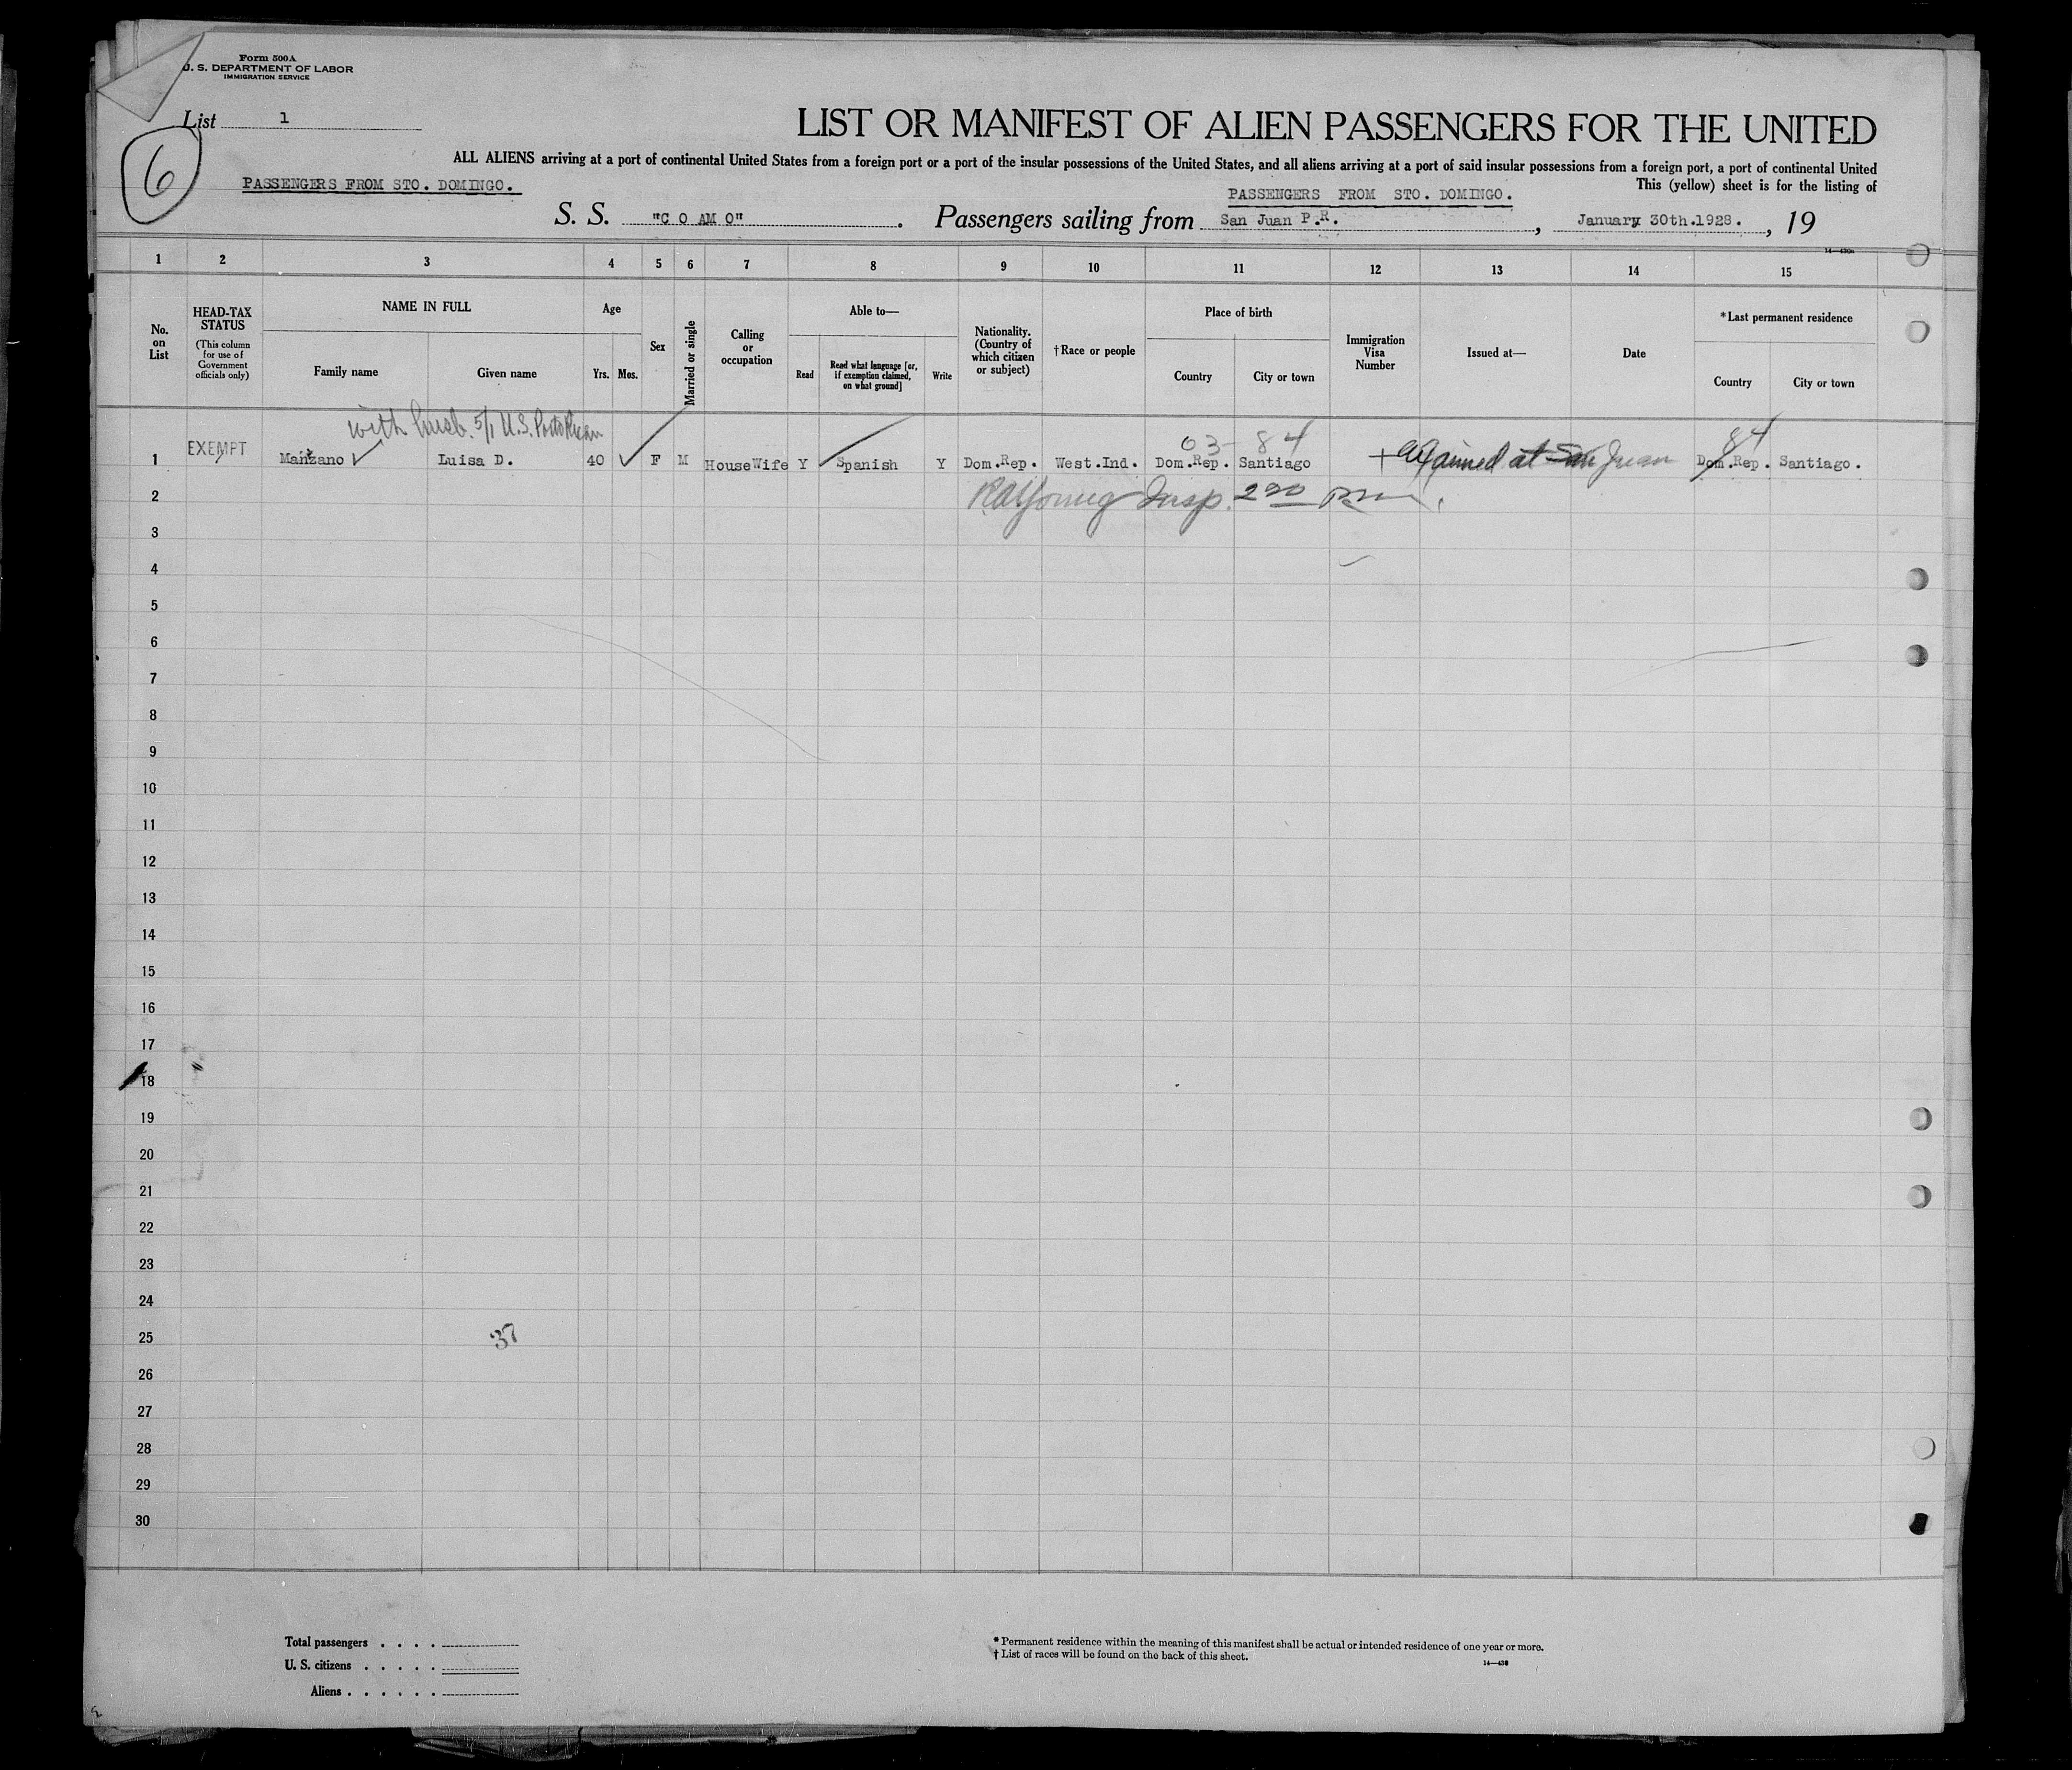 Form 500A
U. S. DEPARTMENT OF LABOR
IMMIGRATION SERVICE
List 1
LIST OR MANIFEST OF ALIEN PASSENGERS FOR THE UNITED
6
ALL ALIENS arriving at a port of continental United States from a foreign port or a port of the insular possessions of the United States, and all aliens arriving at a port of said insular possessions from a foreign port, a port of continental United
This (yellow) sheet is for the listing of
PASSENGERS FROM STO. DOMINGO.
PASSENGERS FROM STO. DOMINGO.
S. S. "C O AM O". Passengers sailing from San Juan P.R., January 30th.1928., 19
1 2 3 4 5 6 7 8 9 10 11 12 13 14 15
No. on List
HEAD-TAX STATUS
(This column for use of Government officials only)
NAME IN FULL
Family name
Given name
Age
Yrs. Mos.
Sex
Married or single
Calling or occupation
Able to—
Read
Read what language [or, if exemption claimed, on what ground]
Write
Nationality. (Country of which citizen or subject)
†Race or people
Place of birth
Country
City or town
Immigration Visa Number
Issued at—
Date
*Last permanent residence
Country
City or town
with husb. 5/1 U.S. Porto Rican
03-84
84
1 EXEMPT Manzano Luisa D. 40 F M HouseWife Y Spanish Y Dom.Rep. West.Ind. Dom.Rep. Santiago at San Juan Dom.Rep. Santiago.
2 Insp. 2 20
3
4
5
6
7
8
9
10
11
12
13
14
15
16
17
18
19
20
21
22
23
24
25 37
26
27
28
29
30
Total passengers . . . .
U. S. citizens . . . . .
Aliens . . . . . .
* Permanent residence within the meaning of this manifest shall be actual or intended residence of one year or more.
† List of races will be found on the back of this sheet.